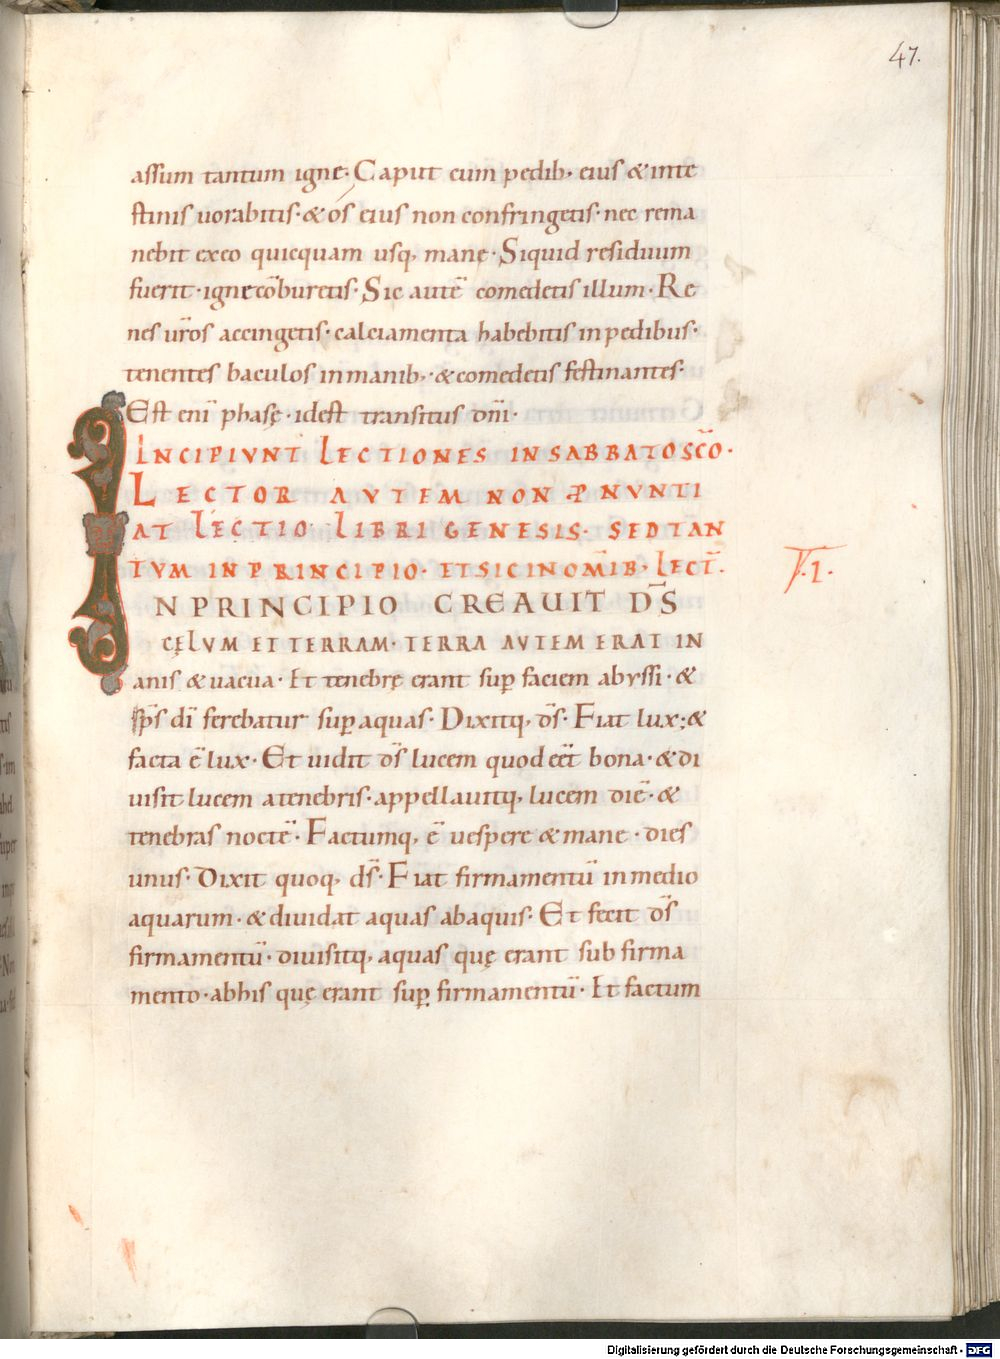 47.
assum tantum igne· Caput cum pedib; eius & inte
stinis uorabitis· & os eius non confringetis· nec rema
nebit ex eo quicquam usq; mane· Siquid residuum
fuerit· igne cōburetis· Sic autē comedetis illum· Re
nes ur̄os accingetis· calciamenta habebitis in pedibus·
tenentes baculos in manib;· & comedetis festinantes·
Est enī phasę· idest transitus dn̄i·
INCIPIVNT LECTIONES IN SABBATO SC̄O·
LECTOR AVTEM NON ꝓNVNTI
AT LECTIO LIBRI GENESIS· SED TAN
TVM IN PRINCIPIO· ET SIC IN OM̄IB; LECT̄·
T·1·
IN PRINCIPIO CREAUIT D̄S
CĘLVM ET TERRAM· TERRA AVTEM ERAT IN
anis & uacua· Et tenebrę erant sup̱ faciem abyssi· &
sp̄s dī ferebatur sup̱ aquas· Dixitq; d̄s· Fiat lux; &
facta ē lux· Et uidit d̄s lucem quod eēt bona· & di
uisit lucem a tenebris· appellauitq; lucem diē· &
tenebras noctē· Factumq; ē uespere & mane· dies
unus· Dixit quoq; d̄s· Fiat firmamentū in medio
aquarum· & diuidat aquas ab aquis· Et fecit d̄s
firmamentū· diuisitq; aquas quę erant sub firma
mento· ab his quę erant sup̱ firmamentū· Et factum
Digitalisierung gefördert durch die Deutsche Forschungsgemeinschaft - DFG